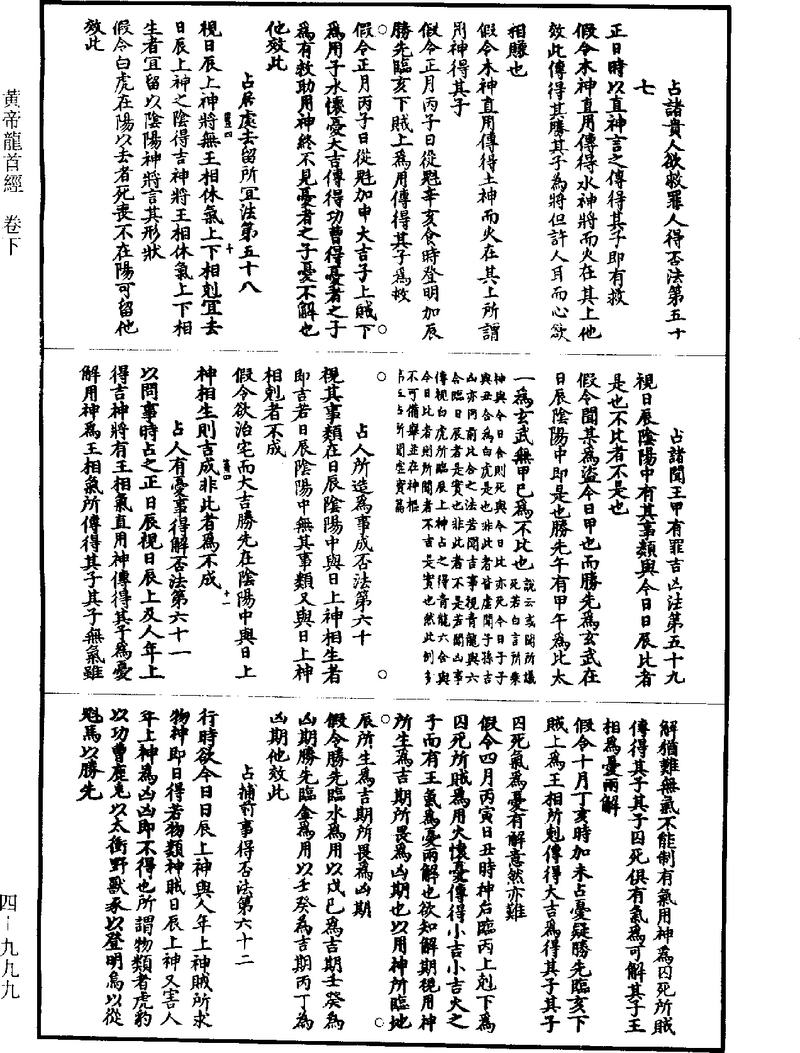 占諸貴人欲救罪人得否法第五十
七
正日時以直神言之傳得其子即有救
假令木神直用傳得水神將而火在其上他
效此傳得其勝其子為將但許人耳而心欲
相賺也
假令木神直用傳得土神而火在其上所謂
用神得其子
假令正月丙子日從魁辛亥食時登明加辰
勝先臨亥下賊上為用傳得其子為救
假令正月丙子日從魁加申大吉子上賊下
為用子水懷憂大吉傳得功曹得憂者之子
為有救助用神終不見憂者之子憂不解也
他效此
占居處去留所宜法第五十八
視日辰上神將無王相休氣上下相剋宜去
日辰上神之陰得吉神將王相休氣上下相
生者宜留以陰陽神將言其形狀
假令白虎在陽以去者死喪不在陽可留他
效此
占諸聞王甲有罪吉凶法第五十九
視日辰陰陽中有其事類與今日日辰比者
是也不比者不是也
假令聞其為盜今日甲也而勝先為玄武在
日辰陰陽中即是也勝先午有甲午為比太
一為玄武無甲巳為不比也
說云或聞所議死若白言所乘
神與今日合則死與今日比亦死今日子子
與丑合為白虎是也非此者皆虛聞子孫吉
凶亦同前比合之法若聞吉事視青龍與六
合臨日辰者是實也非此者不是若聞凶事
傳視白虎所臨辰上神占之得青龍六合與
今日比者則所聞者不吉是實也然此例多
不可備舉並在神樞
第五占所聞虛實篇
占人所造為事成否法第六十
視其事類在日辰陰陽中與日上神相生者
即吉若日辰陰陽中無其事類又與日上神
相剋者不成
假令欲治宅而大吉勝先在陰陽中與日上
神相生則吉成非此者為不成
占人有憂事得解否法第六十一
以問事時占之正日辰視日辰上及人年上
得吉神將有王相氣直用神傳得其子為憂
解用神為王相氣所傳得其子其子無氣雖
解猶難無氣不能制有氣用神為囚死所賊
傳得其子其子囚死俱有氣為可解其子王
相為憂兩解
假令十月丁亥時加未占憂疑勝先臨亥下
賊上為王相所剋傳得大吉為得其子其子
囚死氣為憂有解意然亦難
假令四月丙寅日丑時神后臨丙上剋下為
囚死所賊為用火懷憂傳得小吉小吉火之
子而有王氣為憂兩解也欲知解期視用神
所生為吉期所畏為凶期也以用神所臨地
辰所生為吉期所畏為凶期
假令勝先臨水為用以戊巳為吉期壬癸為
凶期勝先臨金為用以壬癸為吉期丙丁為
凶期他效此
占捕前事得否法第六十二
行時欲令日日辰上神與人年上神賊所求
物神即日得若物類神賊日辰上神又害人
年上神為凶凶即不得也所謂物類者虎豹
以功曹鹿兔以太衝野獸豕以登明鳥以從
魁馬以勝先
黃帝龍首經 卷下
四—九九九